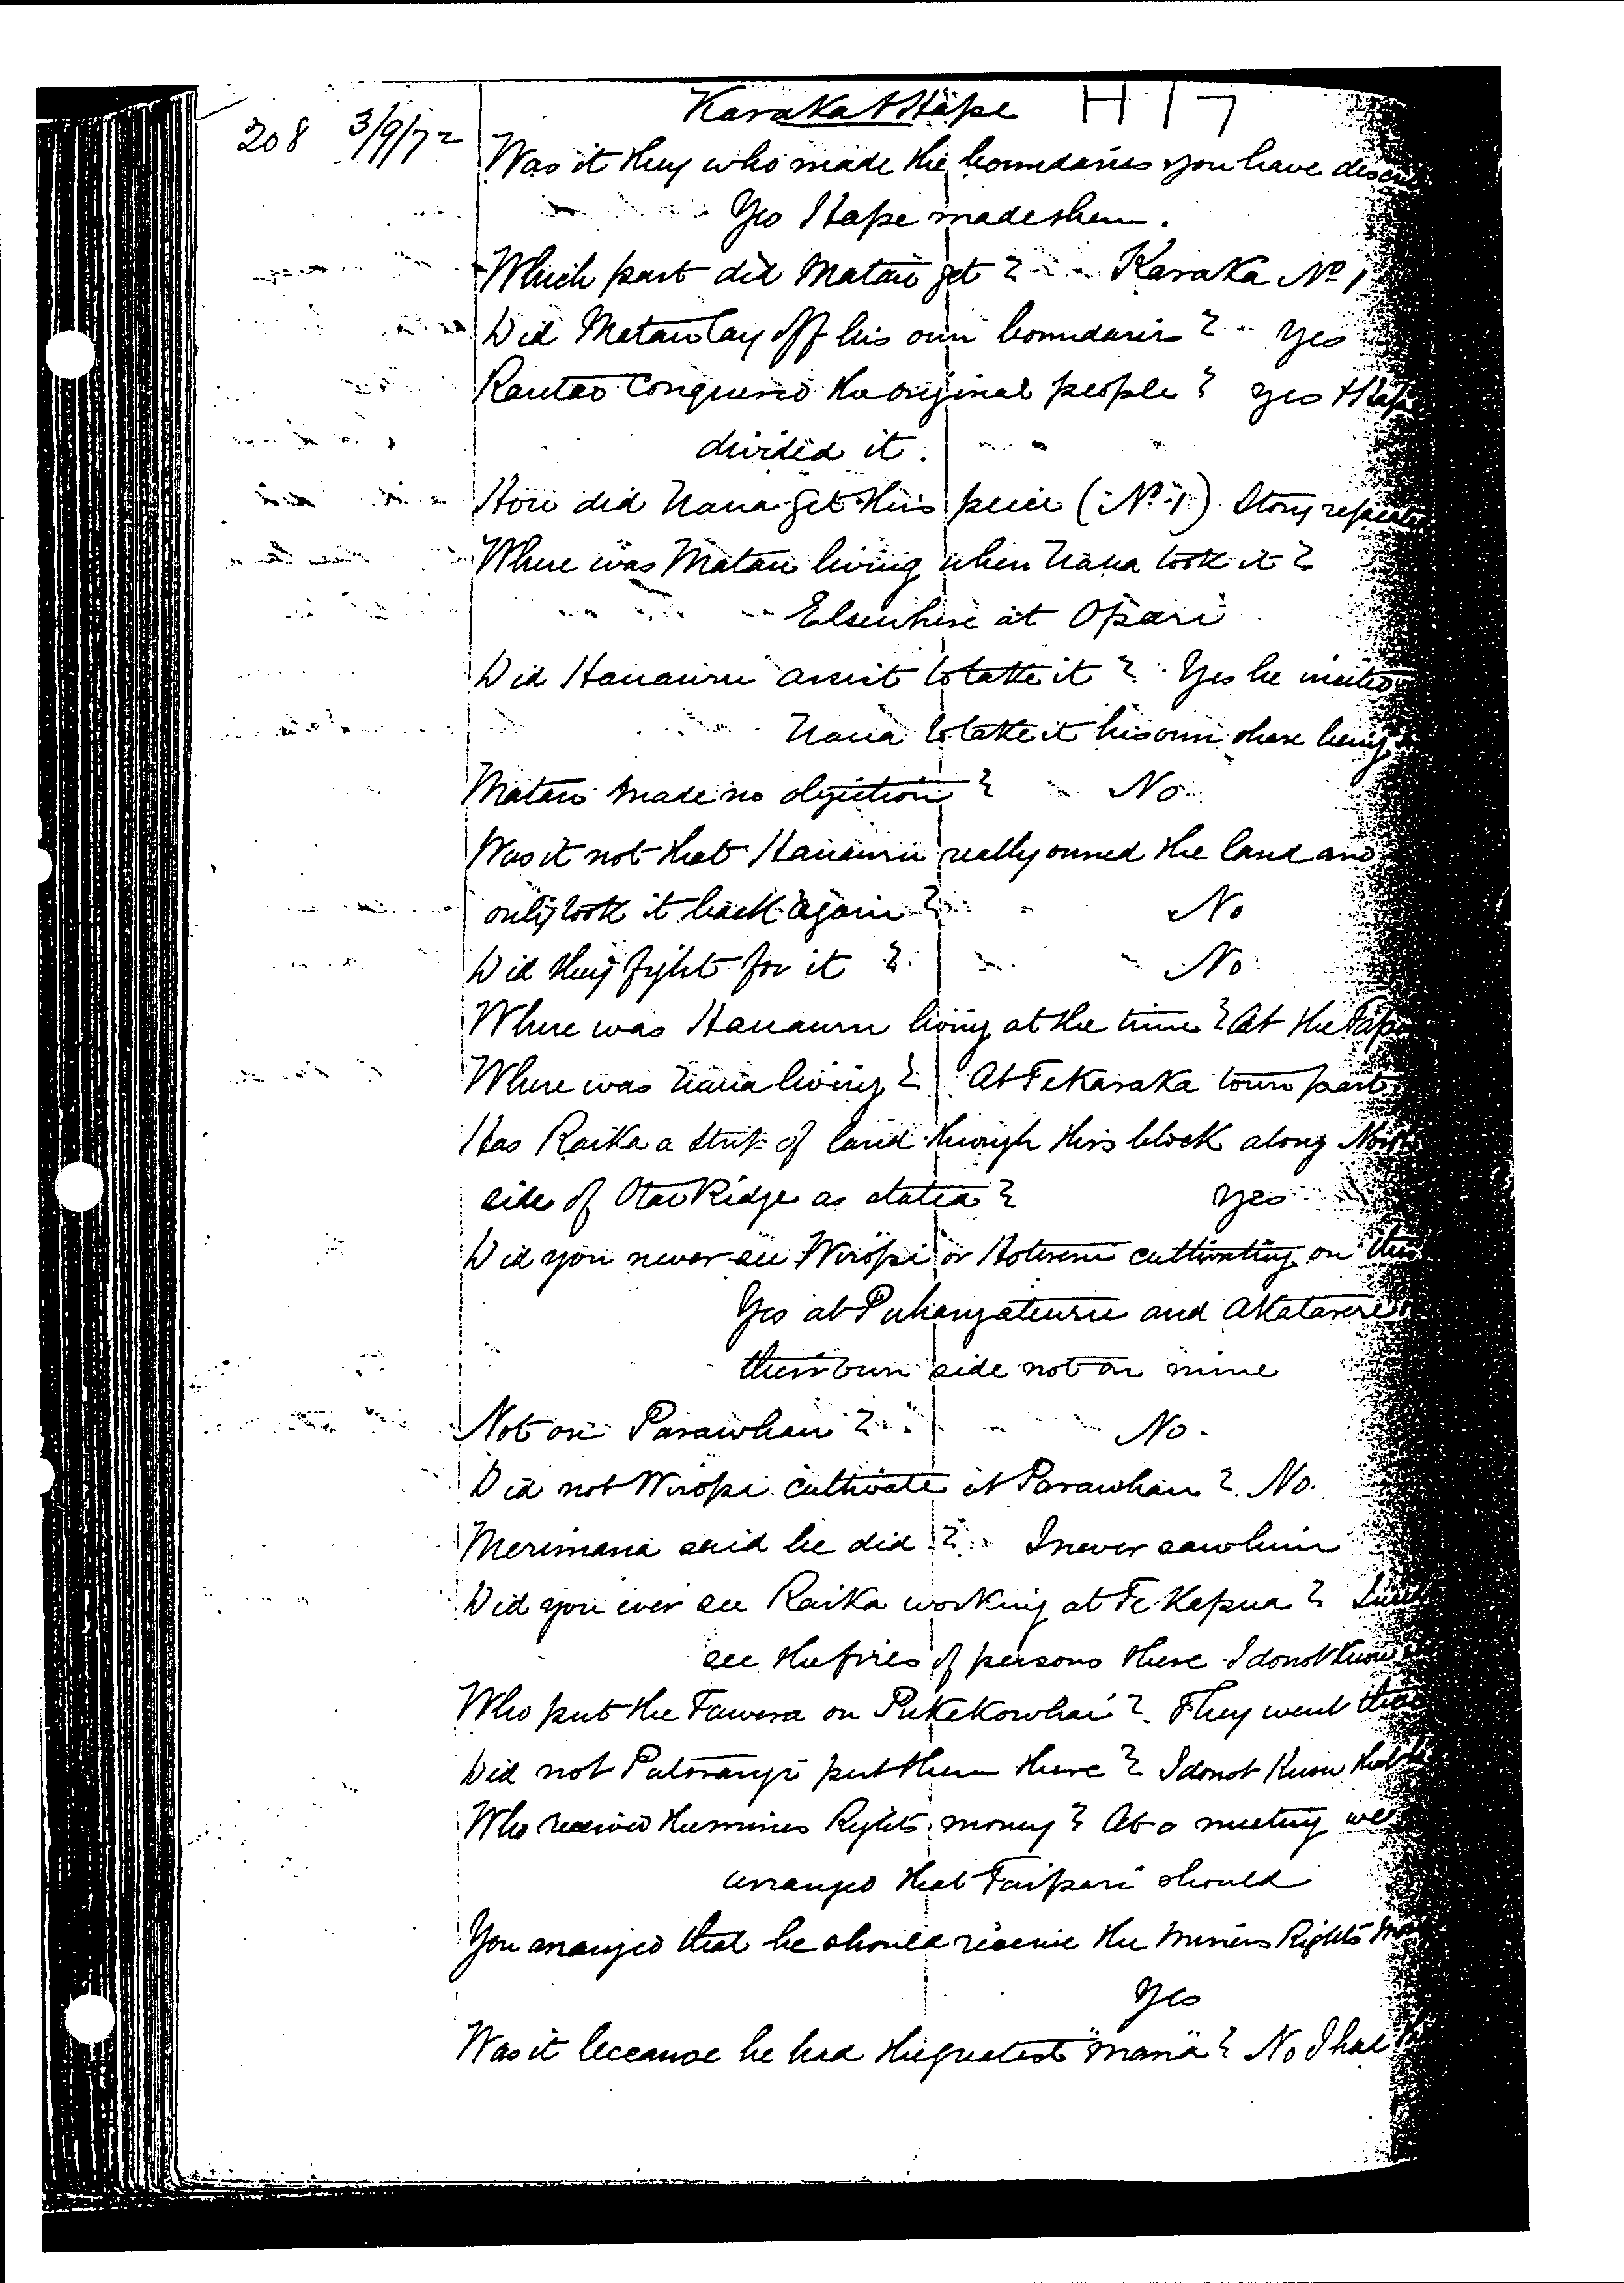 Karaka & Hape H 17
208 3/9/72
Was it they who made the boundaries you have
Yes Hape made them.
Which part did Matau get? Karaka No 1
Did Matau lay off his own boundaries? Yes
Rautao conquered the original people? Yes & Hape
divided it.
How did Naua get this piece (No 1) Story repeated
Where was Matau living when Naua took it?
Elsewhere at Opari
Did Hauauru assist to take it? Yes he invited
Naua to take it his own share being
Matau made no objection? No.
Was it not that Hauauru really owned the land and
only took it back again? No
Did they fight for it? No.
Where was Hauauru living at the time? At the
Where was Naua living? At Te Karaka town part
Has Raika a strip of land through this block along North
side of Otau Ridge as stated? Yes
Did you never see Wiropi or Hotereni cultivating on
Yes at Puhangateuru and Akatarere
their own side not on mine
Not on Parawhau? No.
Did not Wiropi cultivate at Parawhau? No.
Merimana said he did? I never saw him
Did you ever see Raika working at Te Kapua?
see the fires of persons there I do not know
Who put the Tawera on Pukekowhai? They went
Did not Patorangi put them there? I do not know that
Who received the miners Rights money? At a meeting we
arranged that Taipari should
You arranged that he should receive the Miners Rights
Yes
Was it because he had the greatest "mana"? No I had